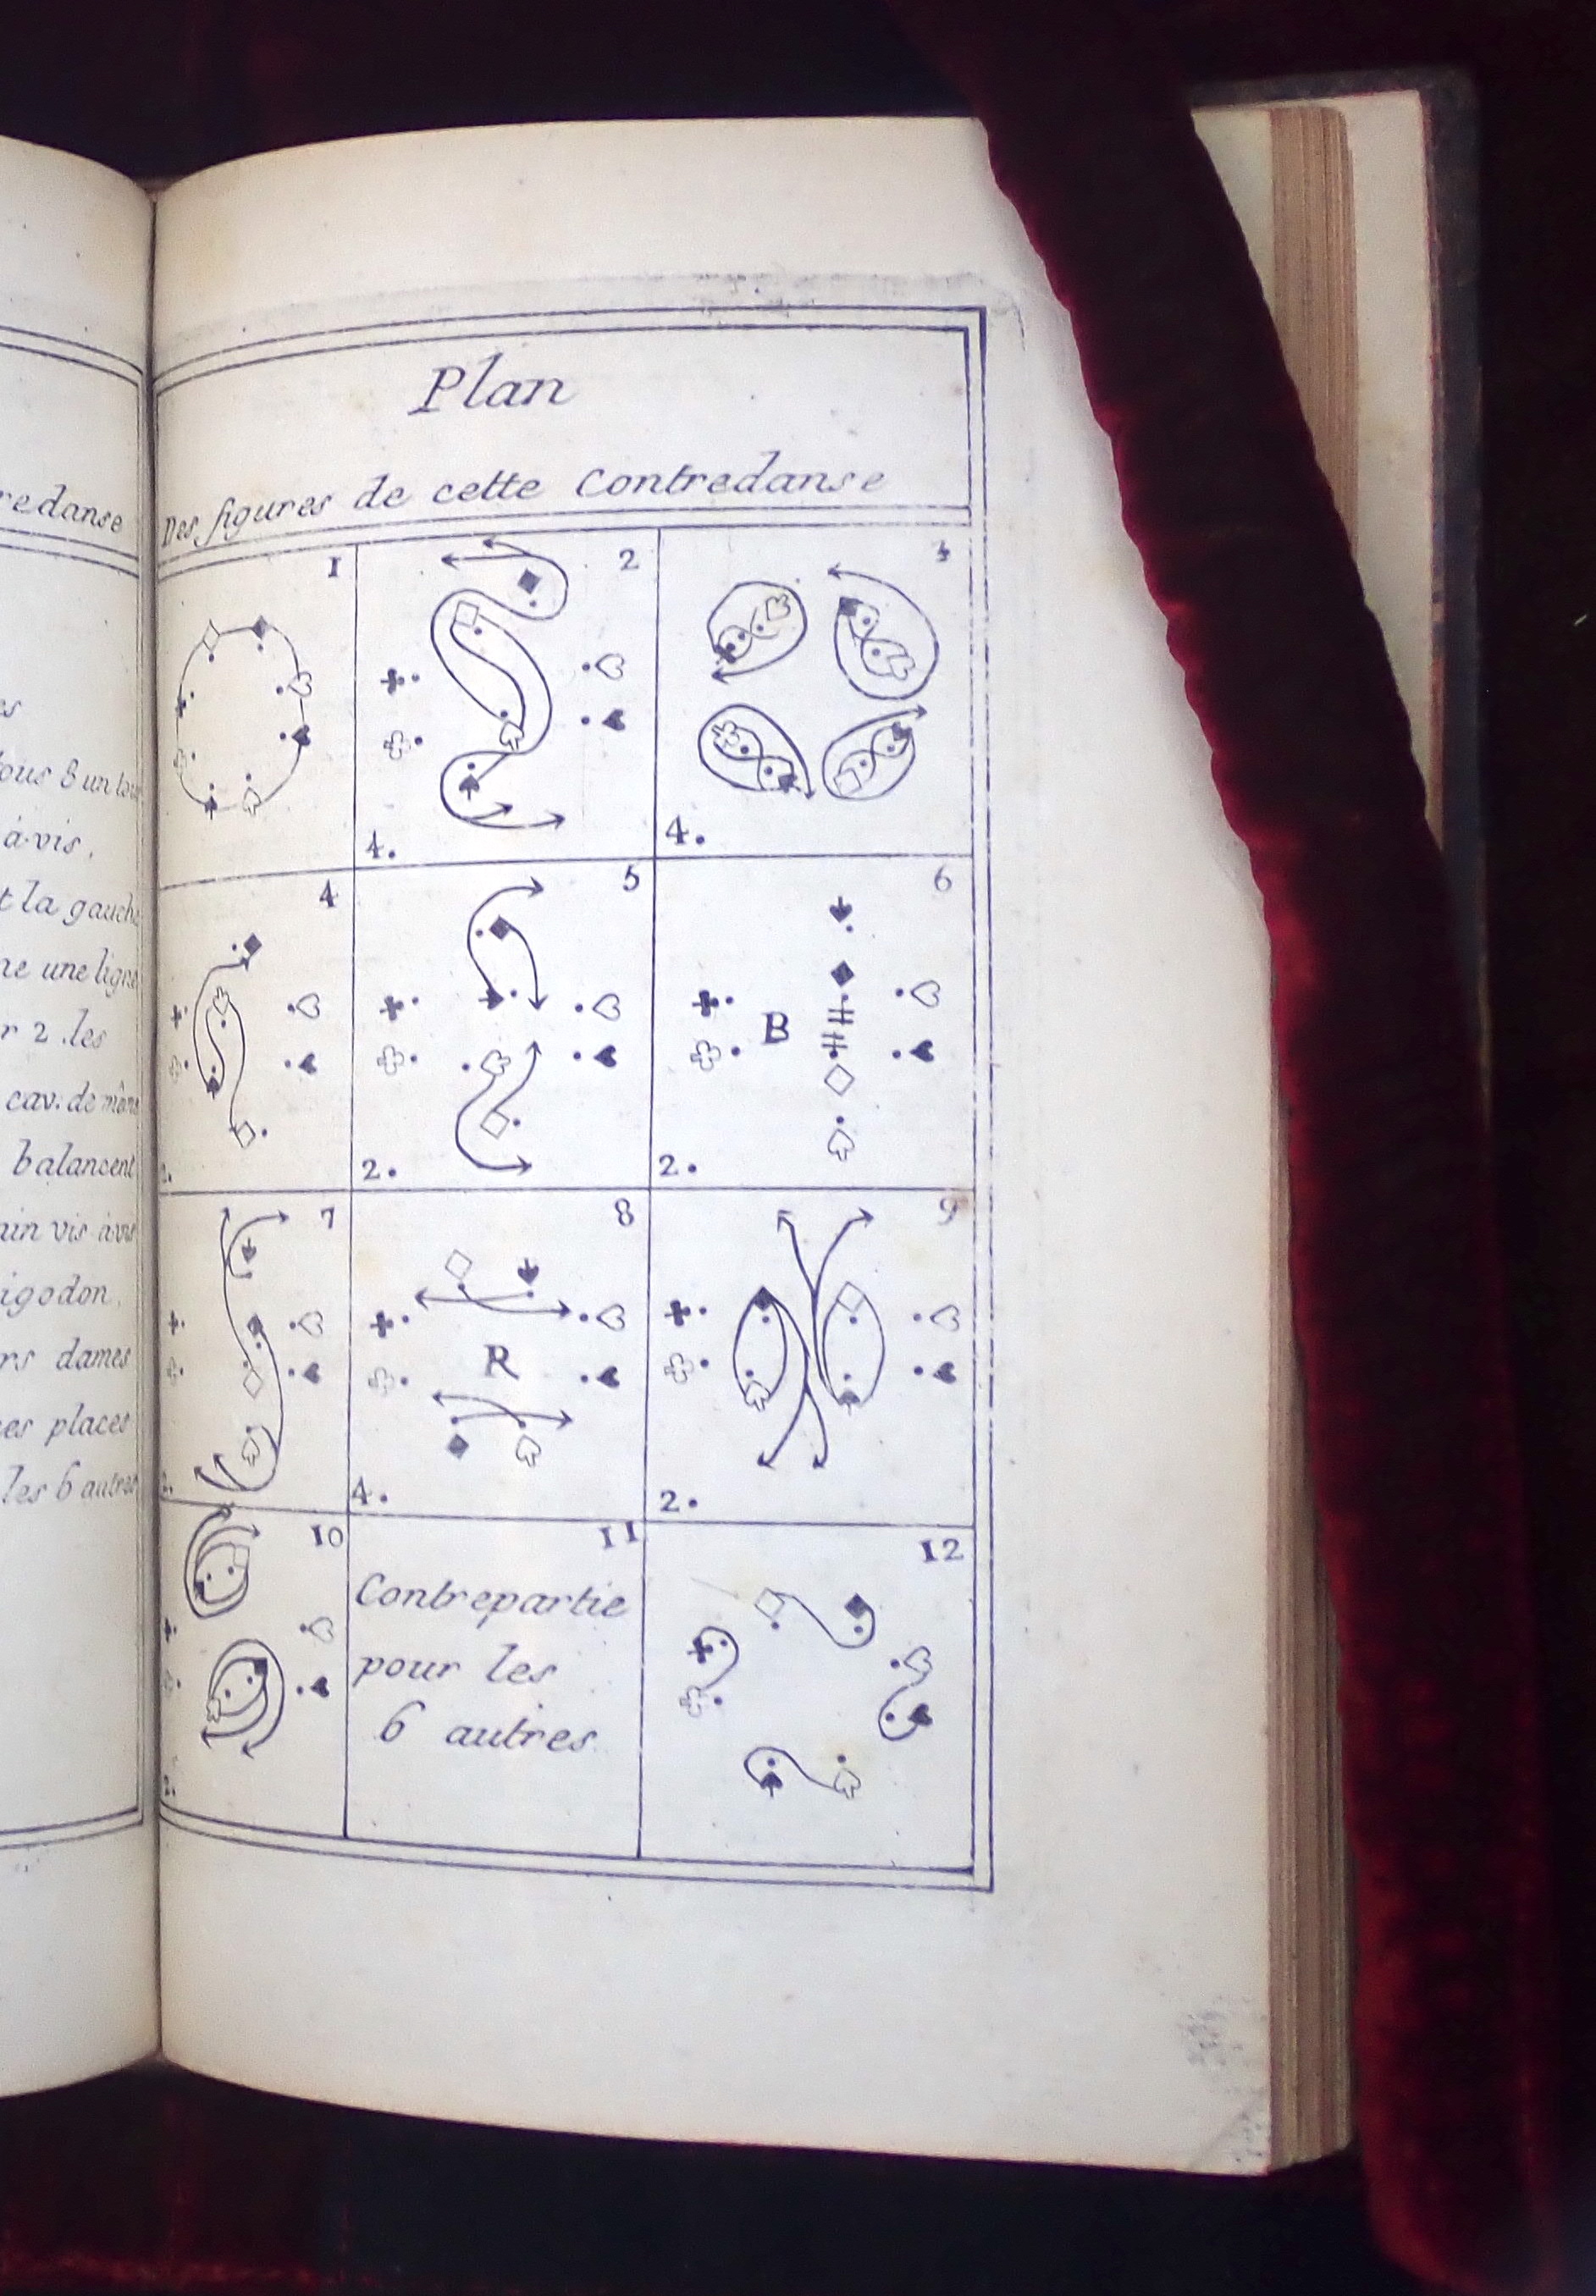 redanse
tous 8 un tour
à-vis,
t la gauche
ne une ligne
r 2 .les
cav. de même
balancent
ain vis àvis
igodon.
rs dames
es places
les 6 autres
Plan
Des figures de cette Contredanse
1
2
4.
4
4.
4
5
2.
6
B
2.
7
8
R
4.
9
2.
10
11
Contrepartie
pour les
6 autres.
12